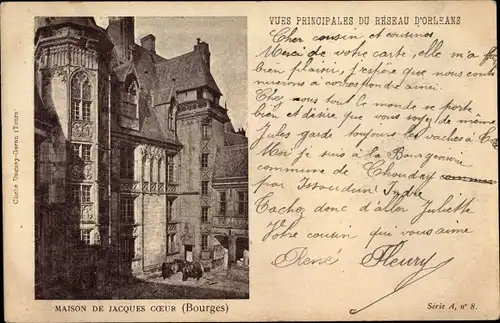 VUES PRINCIPALES DU RÉSEAU D'ORLÉANS
Cher cousin et cousines
Merci de votre carte, elle m'a fait
bien plaisir, j'espère que nous conti
nuerons à correspondre ainsi.
Chez nous tout le monde se porte
bien et désire que vous soyez de même
Jules garde toujours les vaches à
Moi je suis à la Bourgeoisie
commune de Chouday
par Issoudun Indre
Tachez donc d'aller Juliette
Votre cousin qui vous aime
René Fleury
MAISON DE JACQUES CŒUR (Bourges)
Série A, n° 8.